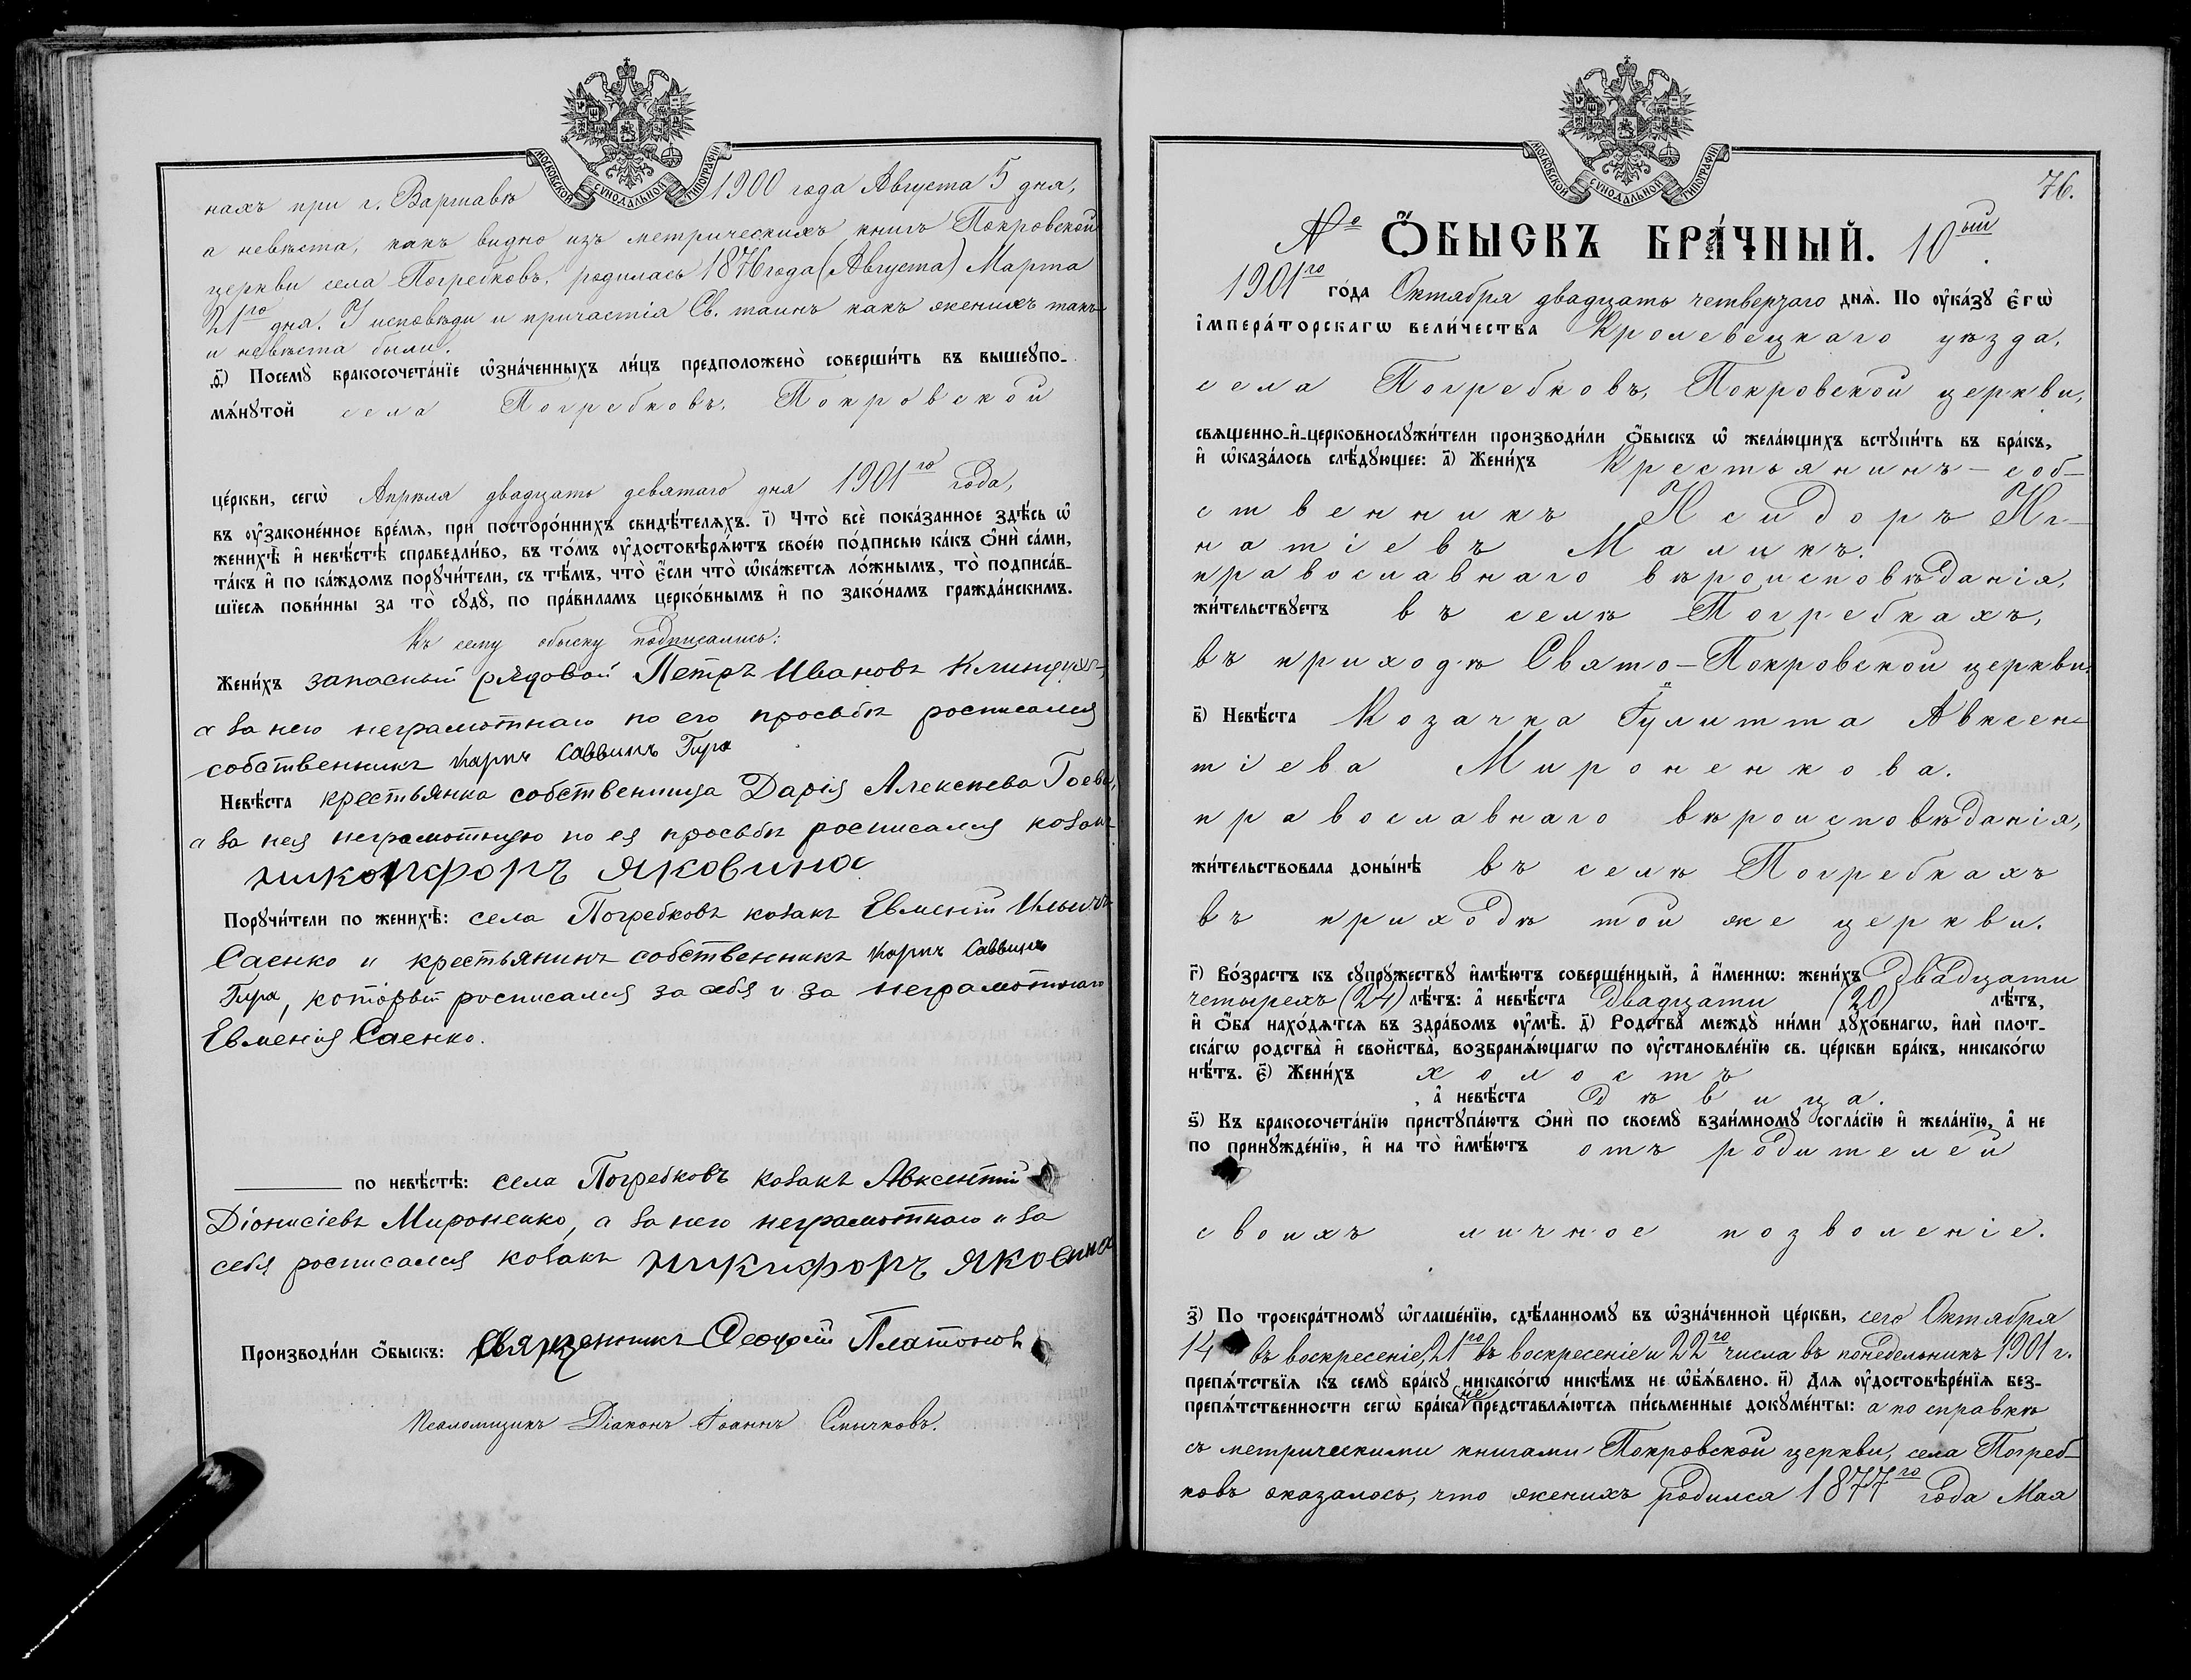 МОСКОВСКОЙ СѴНОДАЛЬНОЙ ТИПОГРАФІИ
нахъ при г. Варшавѣ 1900 года Августа 5 дня,
а невѣста, какъ видно изъ метрическихъ книгъ Покровской
церкви села Погребковъ, родилась 1876 года (Августа) Марта
21го дня. У исповѣди и причастія Св. таинъ какъ женихъ такъ
и невѣста были.
ѳ҃) Посемꙋ̀ бракосочета́нїе ѡ҆зна́ченныхъ ли́цъ предположено̀ соверши́ть въ вышеꙋпо-
мѧ́нꙋтой села Погребковъ, Покровской
це́ркви, сегѡ̀ Апрѣля двадцать девятаго дня 1901го года,
въ ᲂу҆законе́нное вре́мѧ, при посторо́ннихъ свидѣ́телѧхъ. і҃) Что̀ всѐ пока́занное здѣ́сь ѡ҆
женихѣ̀ и҆ невѣ́стѣ справедли́во, въ то́мъ ᲂу҆достовѣрѧ́ютъ свое́ю по́дписью ка́къ ѻ҆нѝ са́ми,
та́къ и҆ по ка́ждомъ порꙋчи́тели, съ тѣ́мъ, что̀ є҆́сли что̀ ѡ҆ка́жетсѧ ло́жнымъ, то̀ подписа́в-
шїесѧ пови́нны за то̀ сꙋдꙋ̀, по пра́виламъ церко́внымъ и҆ по зако́намъ гражда́нскимъ.
Къ сему обыску подписались:
Жени́хъ запасный рядовой Петръ Ивановъ
а за него неграмотнаго по его просьбѣ росписался
собственникъ Карпъ Саввинъ Гира
Невѣ́ста крестьянка собственница Дарія Алексѣева Гоева,
а за нея неграмотную по ея просьбѣ росписался козакъ
Никифоръ Яковина
Порꙋчи́тели по женихѣ̀: села Погребковъ козакъ Евменій Ильичъ
Саенко и крестьянинъ собственникъ Карпъ Саввинъ
Гира, который росписался за себя и за неграмотнаго
Евменія Саенко.
по невѣ́стѣ: села Погребковъ козакъ Авксентій
Діонисіевъ Мироненко, а за него неграмотнаго и за
себя росписался козакъ Никифоръ Яковина
Производи́ли ѻ҆́быскъ: Священникъ Ѳеодосій Платоновъ
Псаломщикъ Діаконъ Іоаннъ Смычковъ.
МОСКОВСКОЙ СѴНОДАЛЬНОЙ ТИПОГРАФІИ
76.
№ Ѻ҆́БЫСКЪ БРА́ЧНЫЙ. 10ый
1901го го́да Октября двадцать четвертаго днѧ̀. По ᲂу҆ка́зꙋ є҆гѡ̀
і҆мпера́торскагѡ вели́чества Кролевецкаго уѣзда,
села Погребковъ, Покровской церкви,
свѧщенно-и҆-церковнослꙋжи́тели производи́ли ѻ҆́быскъ ѡ҆ жела́ющихъ встꙋпи́ть въ бра́къ,
и҆ ѡ҆каза́лось слѣ́дꙋющее: а҃) Жени́хъ Крестьянинъ-соб-
ственникъ Исидоръ Иг-
натіевъ Маликъ.
православнаго вѣроисповѣданія,
жи́тельствꙋетъ въ селѣ Погребкахъ,
въ приходѣ Свято-Покровской церкви.
в҃) Невѣ́ста Козачка Іулитта Авксен-
тіева Мироненкова.
православнаго вѣроисповѣданія,
жи́тельствовала доны́нѣ въ селѣ Погребкахъ
въ приходѣ той же церкви.
г҃) Во́зрастъ къ сꙋпрꙋ́жествꙋ и҆мѣ́ютъ соверше́нный, а҆ и҆́менно: жени́хъ двадцати
четырехъ (24) лѣ́тъ: а҆ невѣ́ста двадцати (20) лѣ́тъ,
и҆ ѻ҆́ба нахо́дѧтсѧ въ здра́вомъ ᲂу҆мѣ̀. д҃) Родства̀ междꙋ̀ ни́ми дꙋхо́внагѡ, и҆лѝ плот-
ска́гѡ родства̀ и҆ свойства̀, возбранѧ́ющагѡ по ᲂу҆становле́нїю св. це́ркви бра́къ, никако́гѡ
нѣ́тъ. є҃) Жени́хъ холостъ
, а҆ невѣ́ста дѣвица.
ѕ҃) Къ бракосочета́нїю пристꙋпа́ютъ ѻ҆нѝ по своемꙋ̀ взаи́мномꙋ согла́сїю и҆ жела́нїю, а҆ не
по принꙋжде́нїю, и҆ на то̀ и҆мѣ́ютъ отъ родителей
своихъ личное позволеніе.
з҃) По троекра́тномꙋ ѡ҆глаше́нїю, сдѣ́ланномꙋ въ ѡ҆зна́ченной це́ркви, сего Октября
14 въ воскресеніе, 21го въ воскресеніе и 22го числа въ понедельникъ 1901 г.
препѧ́тствїѧ къ семꙋ̀ бра́кꙋ никако́гѡ никѣ́мъ не ѡ҆б̾ѧ́влено. и҃) Длѧ ᲂу҆достовѣре́нїѧ без-
препѧ́тственности сегѡ̀ бра́ка не представлѧ́ютсѧ пи́сьменные докꙋме́нты: а по справкѣ
съ метрическими книгами Покровской церкви, села Погреб-
ковъ оказалось, что женихъ родился 1877го года Мая